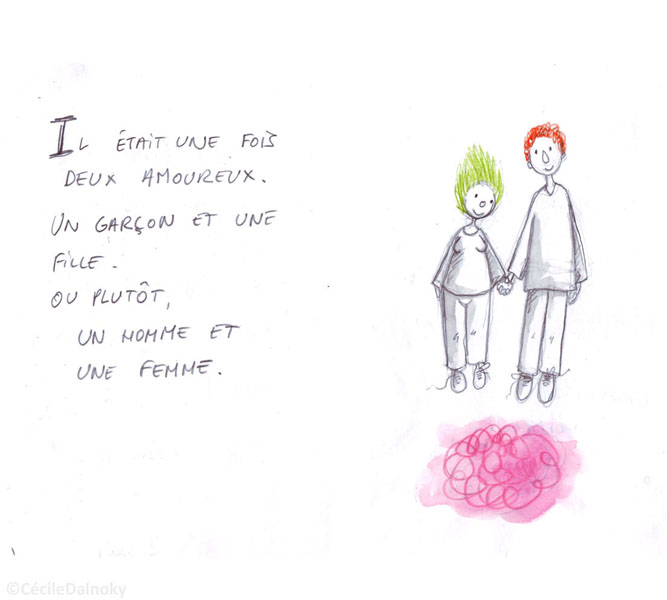 IL ÉTAIT UNE FOIS
DEUX AMOUREUX.
UN GARÇON ET UNE
FILLE.
OU PLUTÔT,
UN HOMME ET
UNE FEMME.
©CécileDalnoky